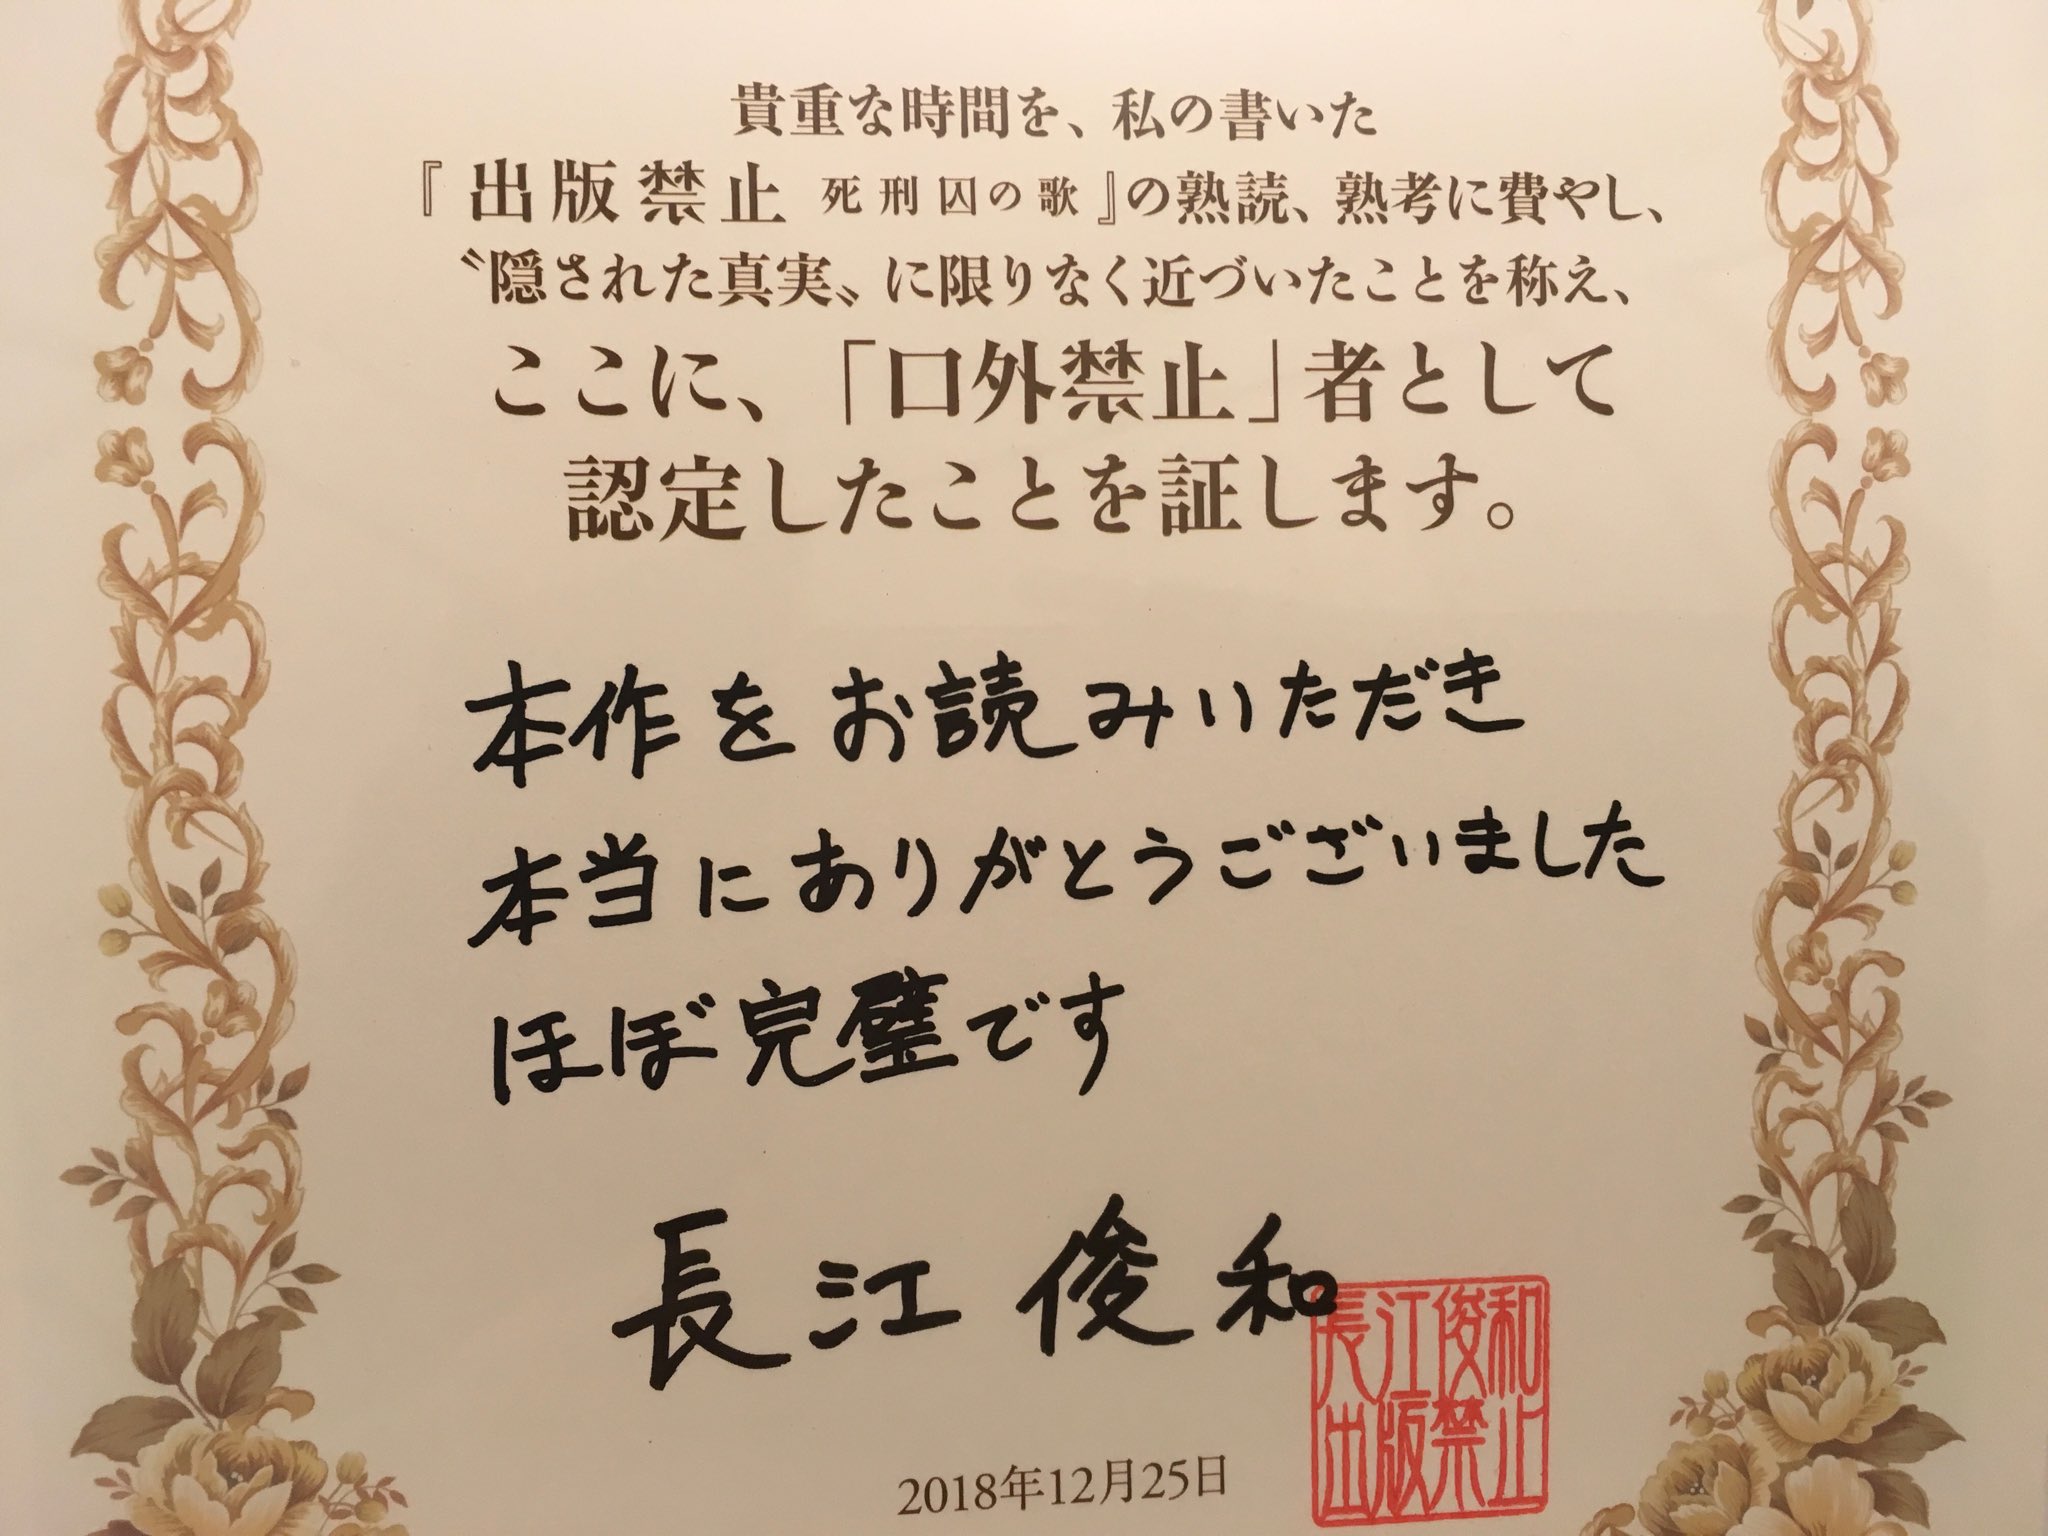 貴重な時間を、私の書いた
『出版禁止 死刑囚の歌』の熟読、熟考に費やし、
〝隠された真実〟に限りなく近づいたことを称え、
ここに、「口外禁止」者として
認定したことを証します。
本作をお読みいただき
本当にありがとうございました
ほぼ完璧です
長江俊和
長江俊和
出版禁止
2018年12月25日